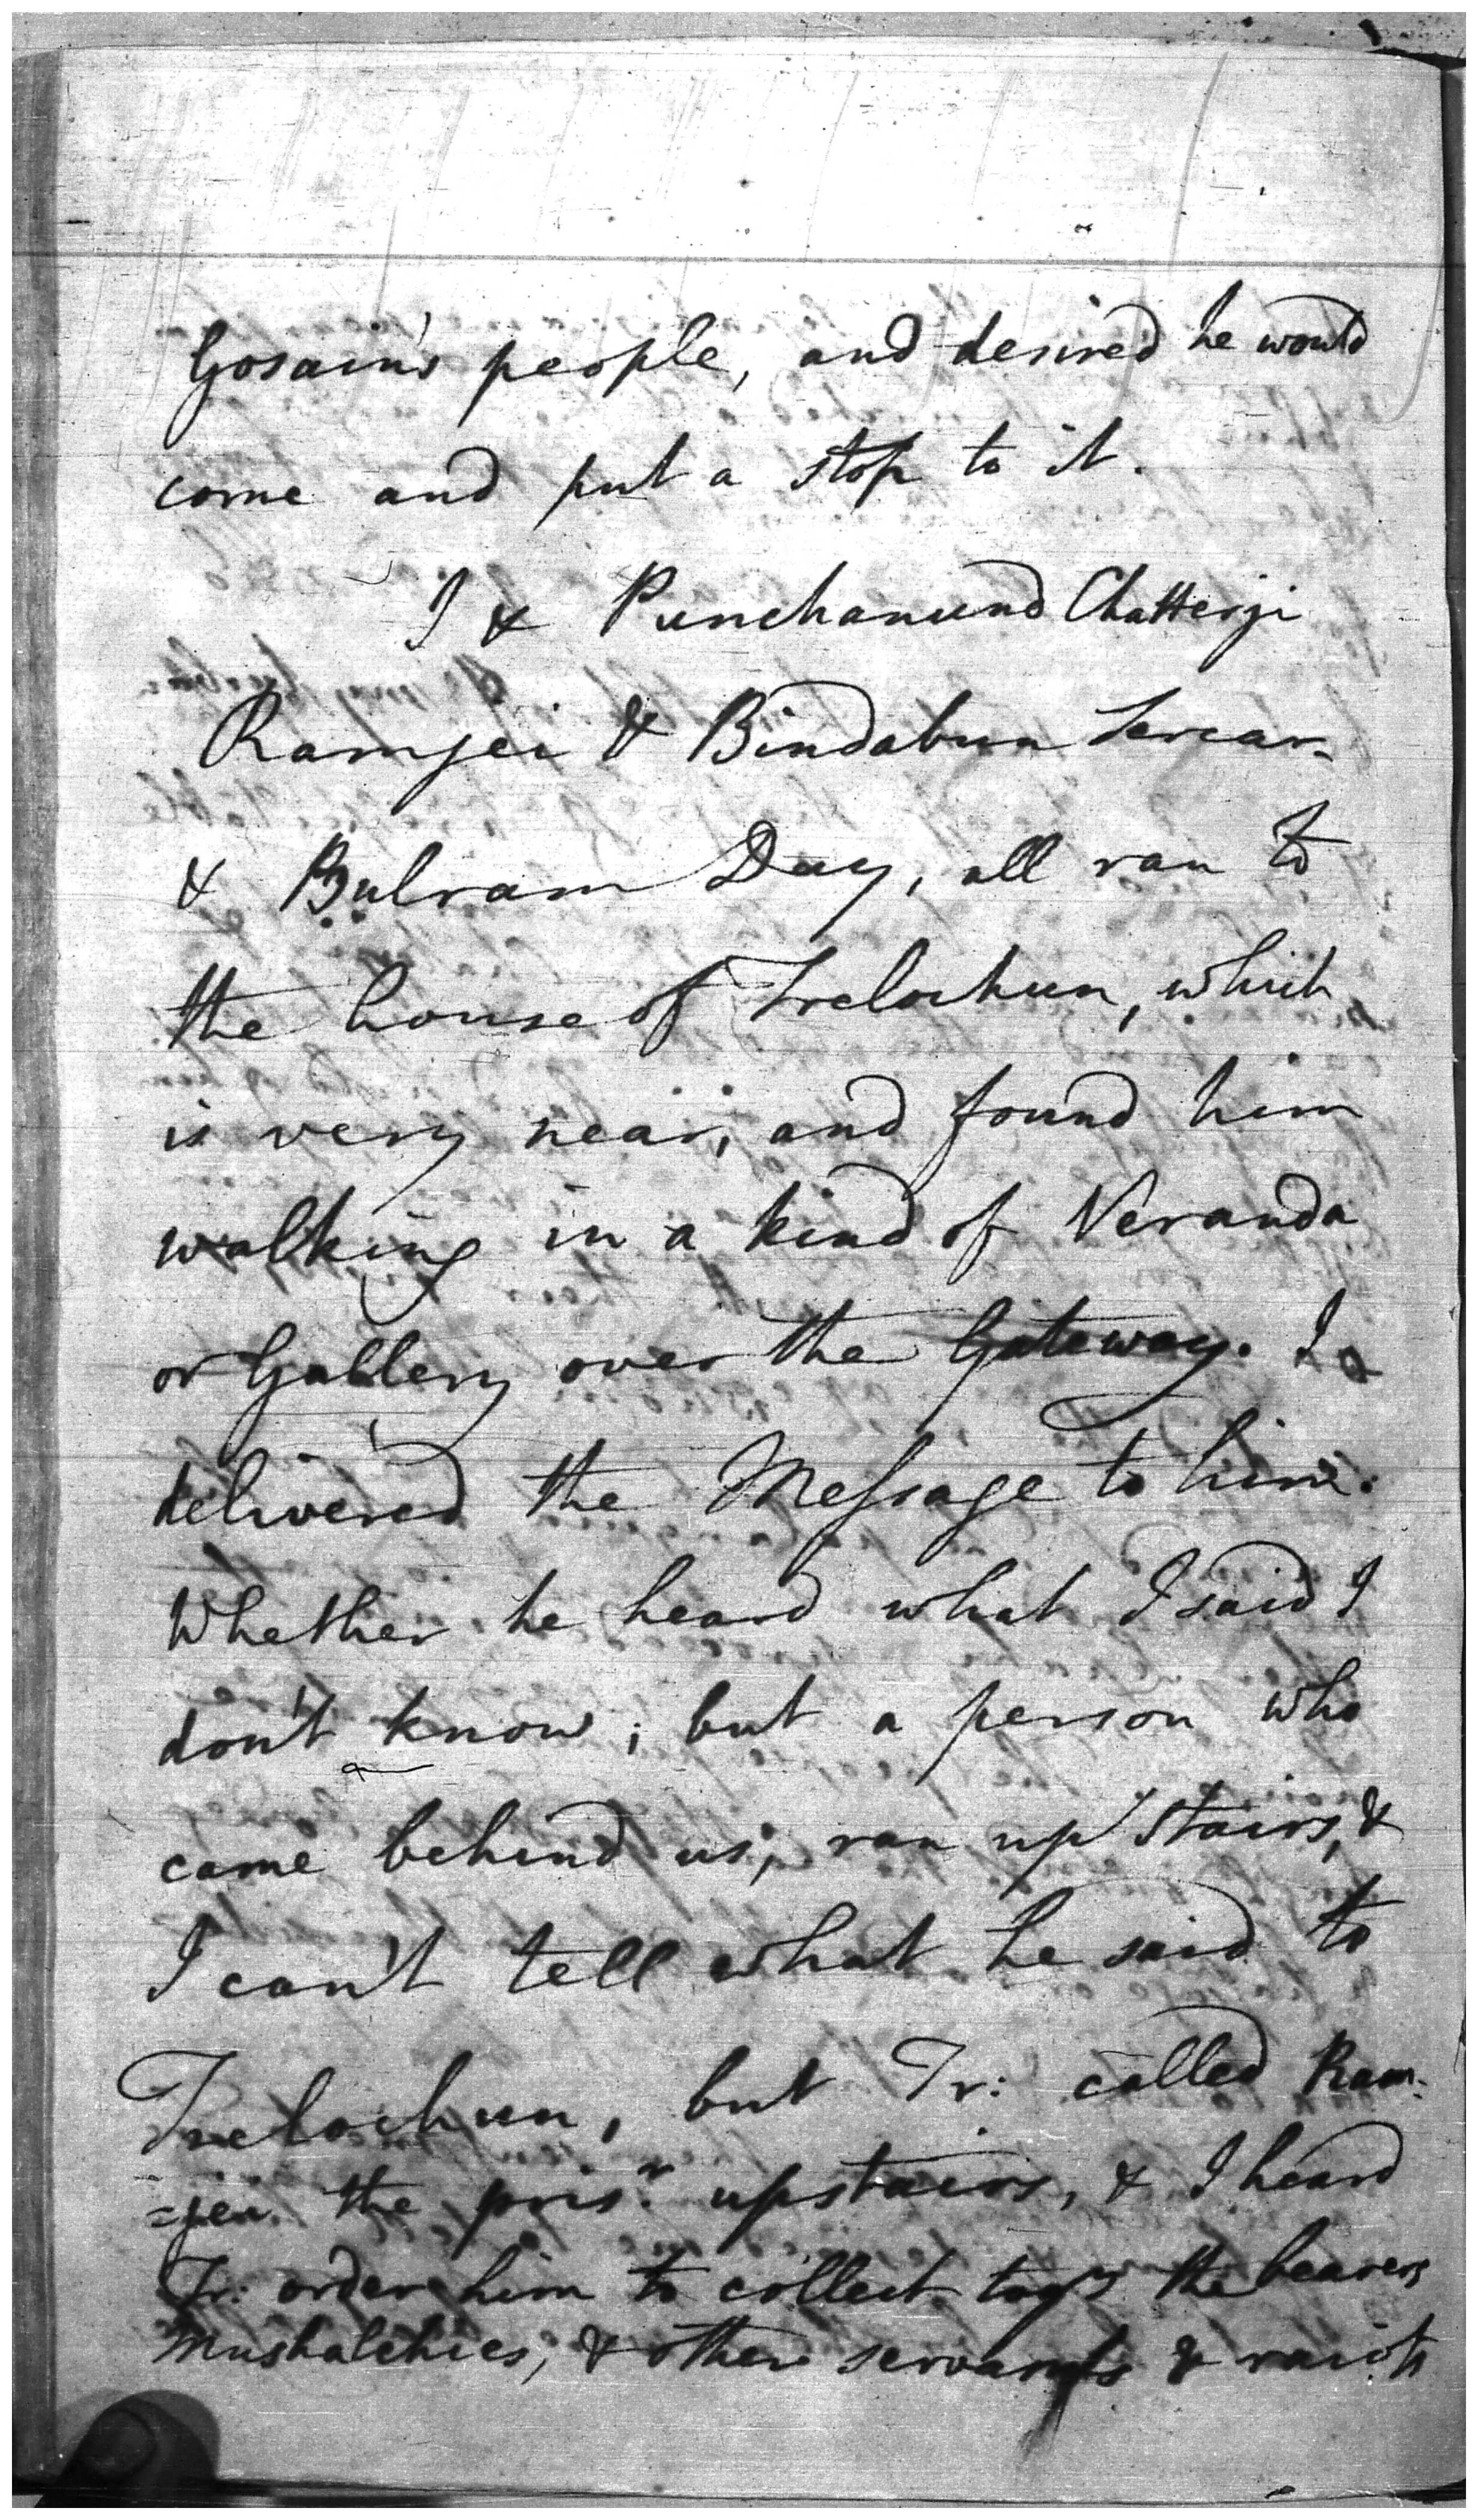 Gosain's people, and desired he would
come and put a stop to it.
I & Punchanund Chatterji
Ramjei & Bindabun Sercar
& Bulram Day, all ran to
the house of Trelochun, which
is very near, and found him
walking in a kind of Veranda
or Gallery over the Gateway. I
delivered the Message to him.
Whether he heard what I said I
don't know; but a person who
came behind us, ran up stairs, &
I can't tell what he said to
Trelochun, but Tr: called Ram-
=jei the prisr. upstairs, & I heard
Tr: order him to collect togr. the bearers
Mushalchies, & other servants & raiots